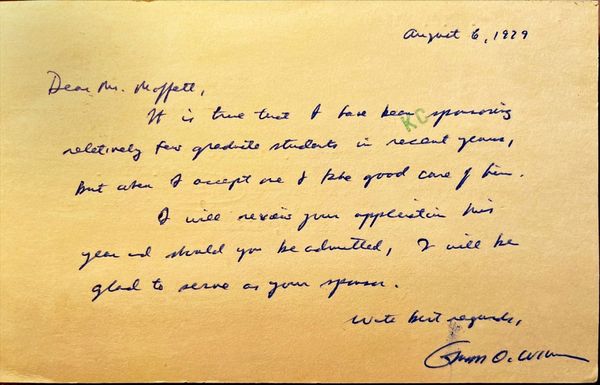 August 6, 1979
Dear Mr. Moffett,
It is true that I have been sponsoring
KC
relatively few graduate students in recent years,
but when I accept one I take good care of him.
I will review your application this
year and should you be admitted, I will be
glad to serve as your sponsor.
With best regards,
O. Wilson